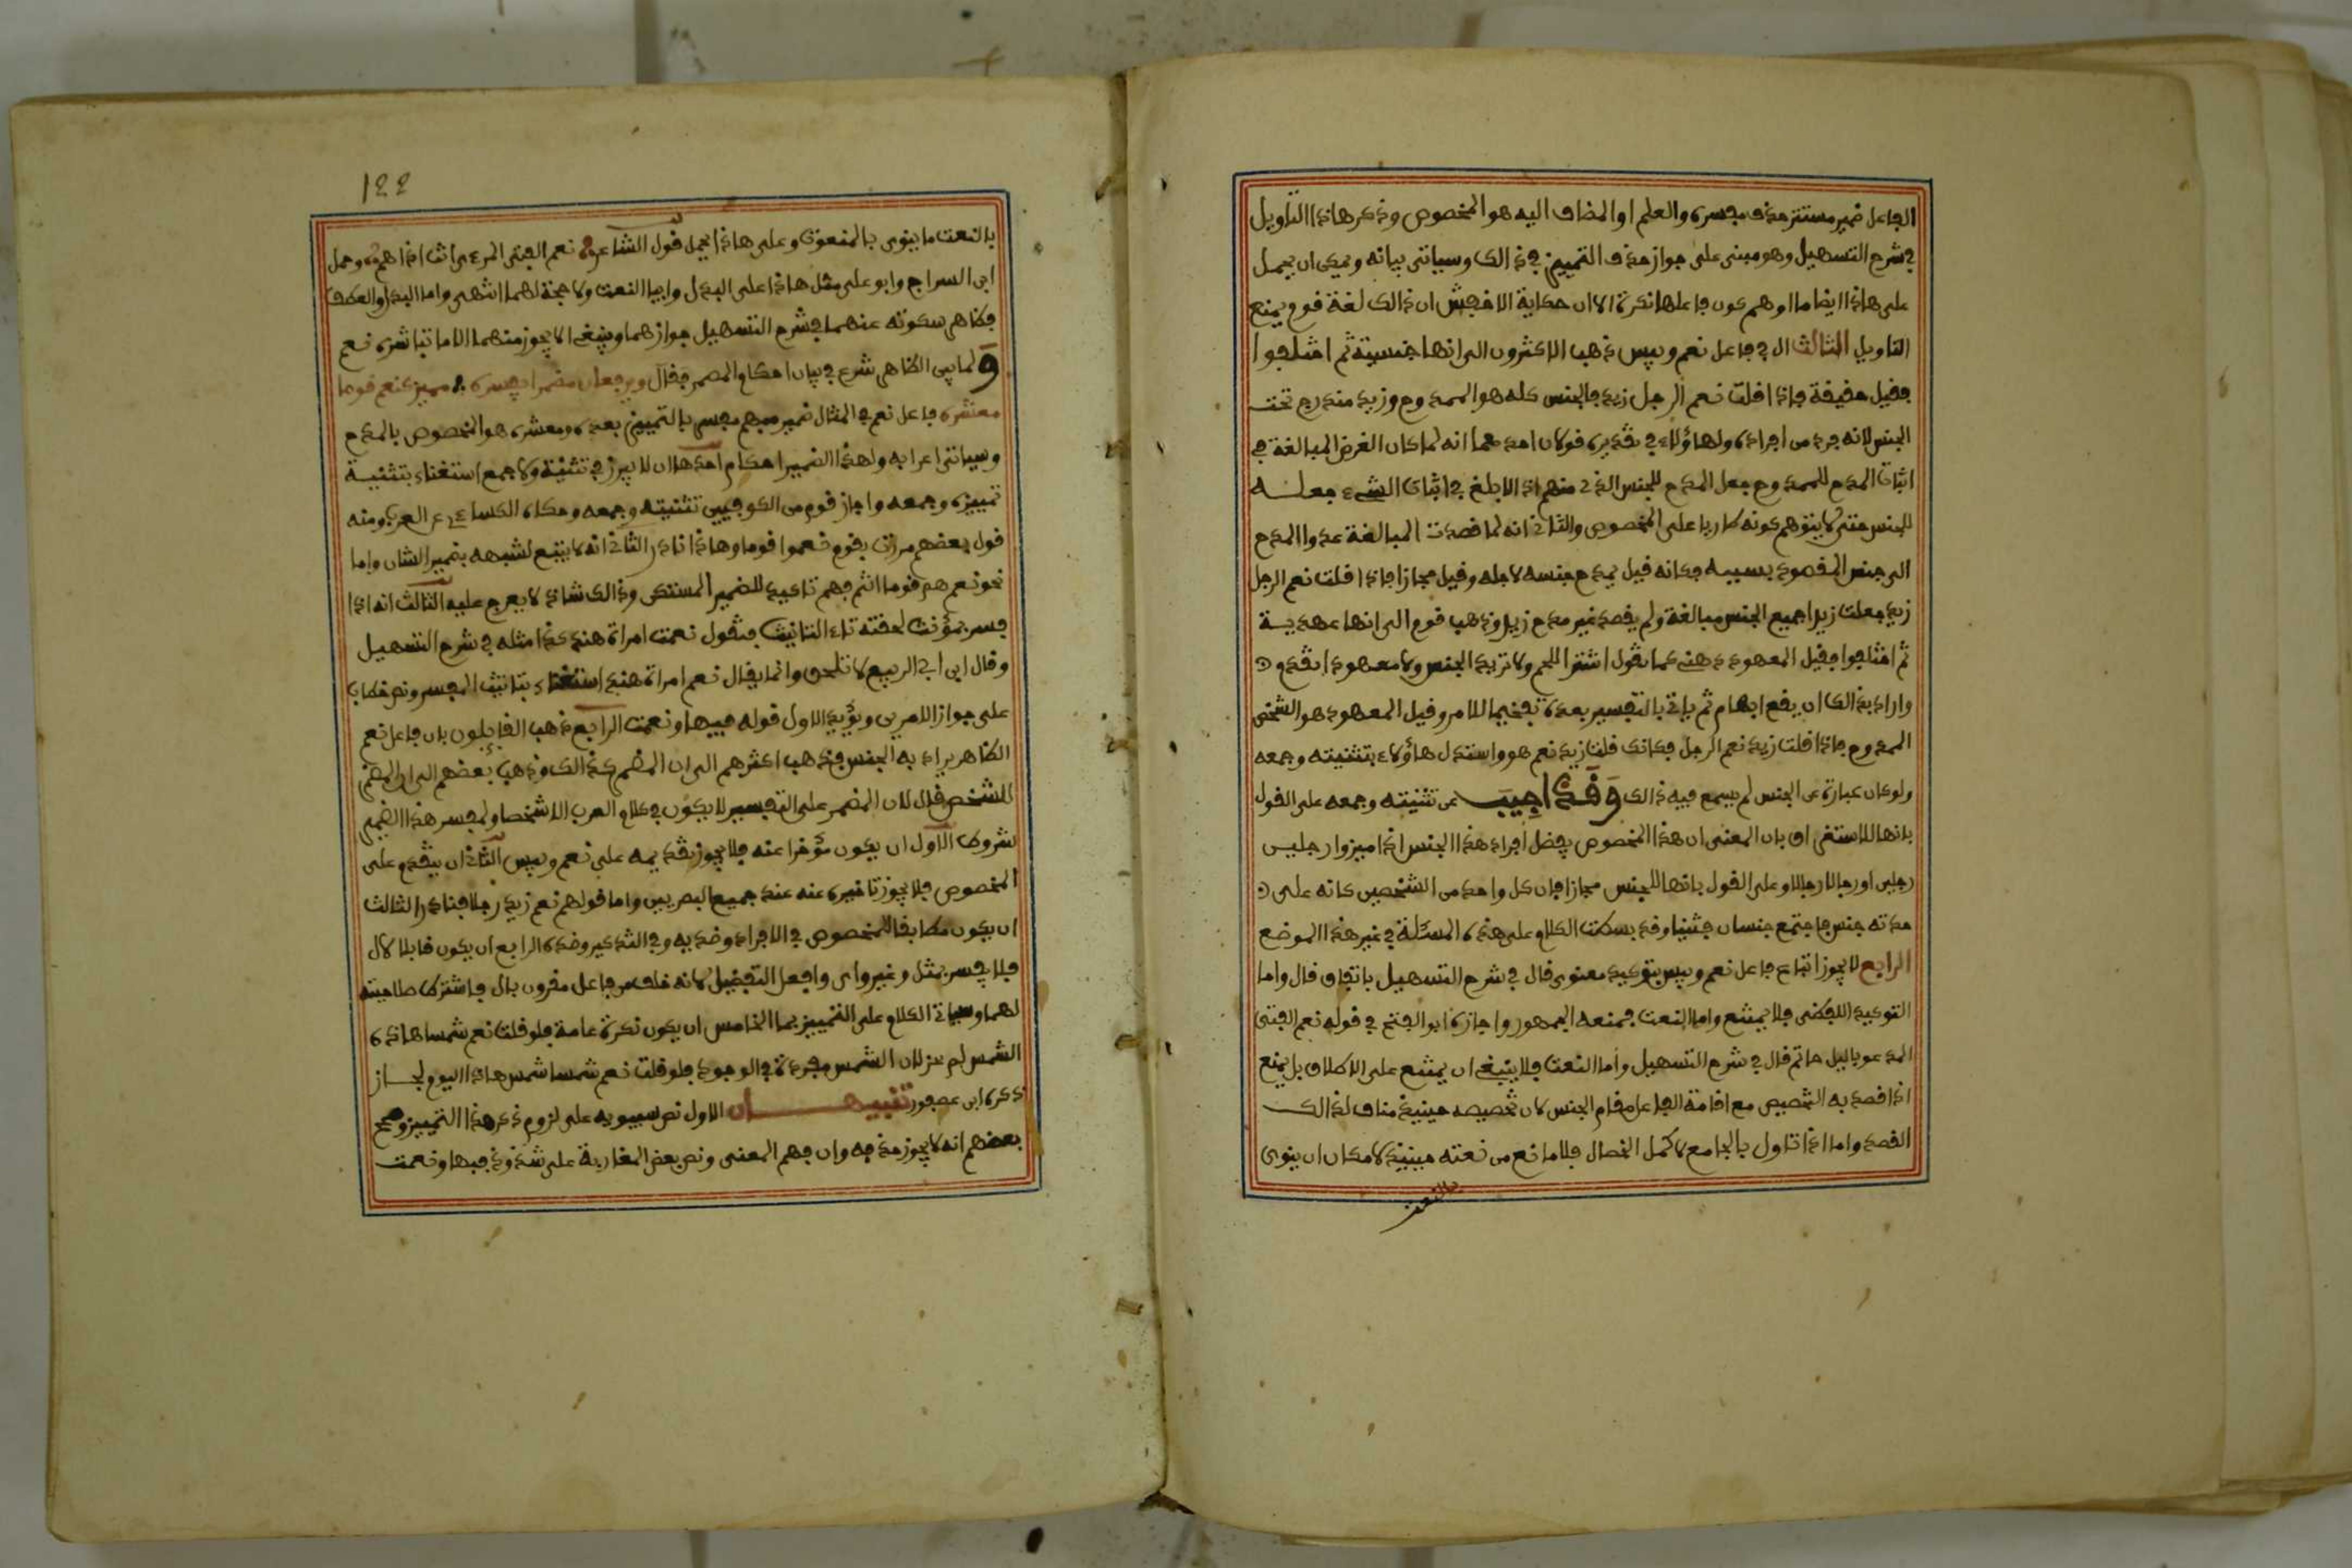 الفاعل ضمير مستتر حذف مفسره والعلم او المضاف اليه هو المخصوص وذكر هاذا التاويل
في شرح التسهيل وهو مبني على جواز حذف التمييز في ذالك وسياتي بيانه ويمكن ان يحمل
على هاذا ايضا ما اوهم كون فاعلها نكرة الا ان حكاية الاخفش ان ذالك لغة قوم يمنع
التاويل الثالث ال في فاعل نعم وبيس ذهب الاكثرون الى انها جنسية ثم اختلفوا
فقيل حقيقة فاذا قلت نعم الرجل زيد فالجنس كله هو الممدوح وزيد مندرج تحت
الجنس لانه فرد من افراده ولهاؤلاء في تقديره قولان احدهما انه لما كان الغرض المبالغة في
اثبات المدح للممدوح جعل المدح للجنس الذي منهم اذ الابلغ في اثبات الشيء جعله
للجنس حتى لا يتوهم كونه طاريا على المخصوص والثاني انه لما قصدت المبالغة عدوا المدح
الى جنس المقصود بسببه فكانه قيل يمدح جنسه لاجله وقيل مجازا فاذا قلت نعم الرجل
زيد جعلت زيدا جميع الجنس مبالغة ولم يقصد غير مدح زيد وذهب قوم الى انها عهدية
ثم اختلفوا فقيل المعهود ذهني كما تقول اشتر اللحم ولا تريد الجنس ولا معهود اتقدم
واراد بذالك ان يقع ابهام ثم ياتي بالتفسير بعده تفخيما للامر وقيل المعهود هو الشخص
الممدوح فاذا قلت زيد نعم الرجل فكانك قلت زيد نعم هو واستدل هاؤلاء بتثنيته وجمعه
ولو كان عبارة عن الجنس لم يسمع فيه ذالك وقد اجيب عن تثنيته وجمعه على القول
بانها للاستغراق بان المعنى ان هذا المخصوص يفضل افراد هذا الجنس اذا ميزوا رجلين
رجلين او رجالا رجالا وعلى القول بانها للجنس مجازا فان كل واحد من الشخصين كانه على
حدته جنس فاجتمع جنسان فثنيا وقد بسكت الكلام على هذه المسئلة في غير هذا الموضع
الرابع لا يجوز اتباع فاعل نعم وبيس بتوكيد معنوي قال في شرح التسهيل باتفاق قال واما
التوكيد اللفظي فلا يمتنع واما النعت فمنعه الجمهور واجازه ابو الفتح في قوله نعم الفتى
المدعو بالليل حاتم قال في شرح التسهيل واما النعت فلا ينبغي ان يمتنع على الاطلاق بل يمنع
اذا قصد به التخصيص مع اقامة الفاعل مقام الجنس لان تخصيصه حينيذ مناف لذالك
القصد واما اذا تاول بالجامع لاكمل الخصال فلا مانع من نعته حينيذ لامكان ان ينوى
بالنعت
١٤٤
بالنعت ما ينوى بالمنعوت وعلى هاذا يحمل قول الشاعر نعم الفتى المري انت اذا هم وحمل
ابن السراج وابو على مثل هاذا على البدل وابيا النعت ولا حجة لهما انتهى واما البدل والعطف
فظاهر سكوته عنهما في شرح التسهيل جوازهما وينبغي الا يجوز منهما الا ما تباشره نعم
ولما بين الظاهر شرع في بيان احكام المضمر فقال ويرفعان مضمرا يفسره مميز كنعم قوما
معشره فاعل نعم في المثال ضمير مبهم مفسر بالتمييز بعده ومعشره هو المخصوص بالمدح
وسياتي اعرابه ولهذا الضمير احكام احدها ان لا يبرز في تثنية ولا جمع استغناء بتثنية
تمييزه وجمعه واجاز قوم من الكوفيين تثنيته وجمعه وحكاه الكساءي عن العرب ومنه
قول بعضهم مررت بقوم نعموا قوما وهاذا نادر الثاني انه لا يتبع لشبهه بضمير الشان واما
نحو نعم هم قوما انتم فهم تاكيد للضمير المستكن وذالك شاذ لا يعرج عليه الثالث انه اذا
فسر بمؤنث لحقته تاء التانيث فتقول نعمت امراة هند كذا مثله في شرح التسهيل
وقال ابن ابي الربيع لا تلحق وانما يقال نعم امراة هند استغناء بتانيث المفسر ونص خطاب
على جواز الامرين ويؤيد الاول قوله فيها ونعمت الرابع ذهب القايلون بان فاعل نعم
الظاهر يراد به الجنس فذهب اكثرهم الى ان المضمر كذالك وذهب بعضهم الى ان المضمر
للشخص قال لان المضمر على التفسير لا يكون في كلام العرب الا شخصا ولمفسر هذا الضمير
شروط الاول ان يكون مؤخرا عنه فلا يجوز تقديمه على نعم وبيس الثاني ان يتقدم على
المخصوص فلا يجوز تاخيره عنه عند جميع البصريين واما قولهم نعم زيد رجلا فنادر الثالث
ان يكون مطابقا للمخصوص في الافراد وضديه وفي التذكير وضده الرابع ان يكون قابلا لال
فلا يفسر بمثل وغير واي وافعل التفضيل لانه خلف من فاعل مقرون بال فاشترط صلاحيته
لهما وسياتي الكلام على التمييز بما الخامس ان يكون نكرة عامة فلو قلت نعم شمسا هاذه
الشمس لم يجز لان الشمس مفردة في الوجود فلو قلت نعم شمسا شمس هاذا اليوم لجاز
ذكره ابن عصفور تنبيهان الاول نص سيبويه على لزوم ذكر هذا التمييز وصحح
بعضهم انه لا يجوز حذفه وان فهم المعنى ونص بعض المغاربة على شذوذ فبها ونعمت